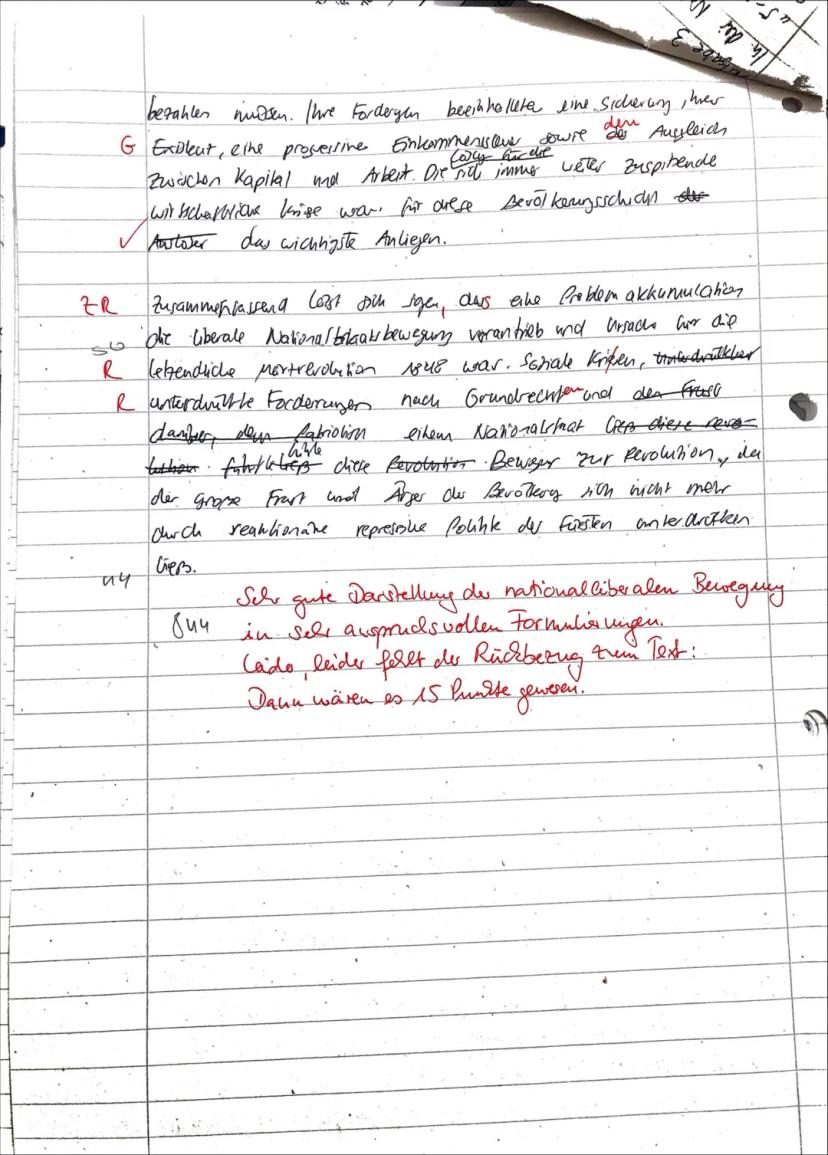 bezahlen müssen. Ihre Forderungen beeinhalteten eine Sicherung ihrer
G Existenz, eine progressive Einkommenssteuer sowie den Ausgleich
zwischen Kapital und Arbeit. Die sich immer weiter zuspitzende
wirtschaftliche Krise war für diese Bevölkerungsschicht
✓ das wichtigste Anliegen.
ZR Zusammenfassend lässt sich sagen, dass eine Problemakkumulation
die liberale Nationalstaatsbewegung vorantrieb und Ursache für die
R letzendliche Märzrevolution 1848 war. Soziale Krisen,
R unterdrückte Forderungen nach Grundrechten und
einem Nationalstaat
führte diese Beweger zur Revolution, da
der große Frust und Ärger der Bevölkerung sich nicht mehr
durch reaktionäre repressive Politik der Fürsten unterdrücken
ließ.
Sehr gute Darstellung der nationalliberalen Bewegung
in sehr anspruchsvollen Formulierungen.
leider fehlt der Rückbezug zum Text:
Dann wären es 15 Punkte gewesen.